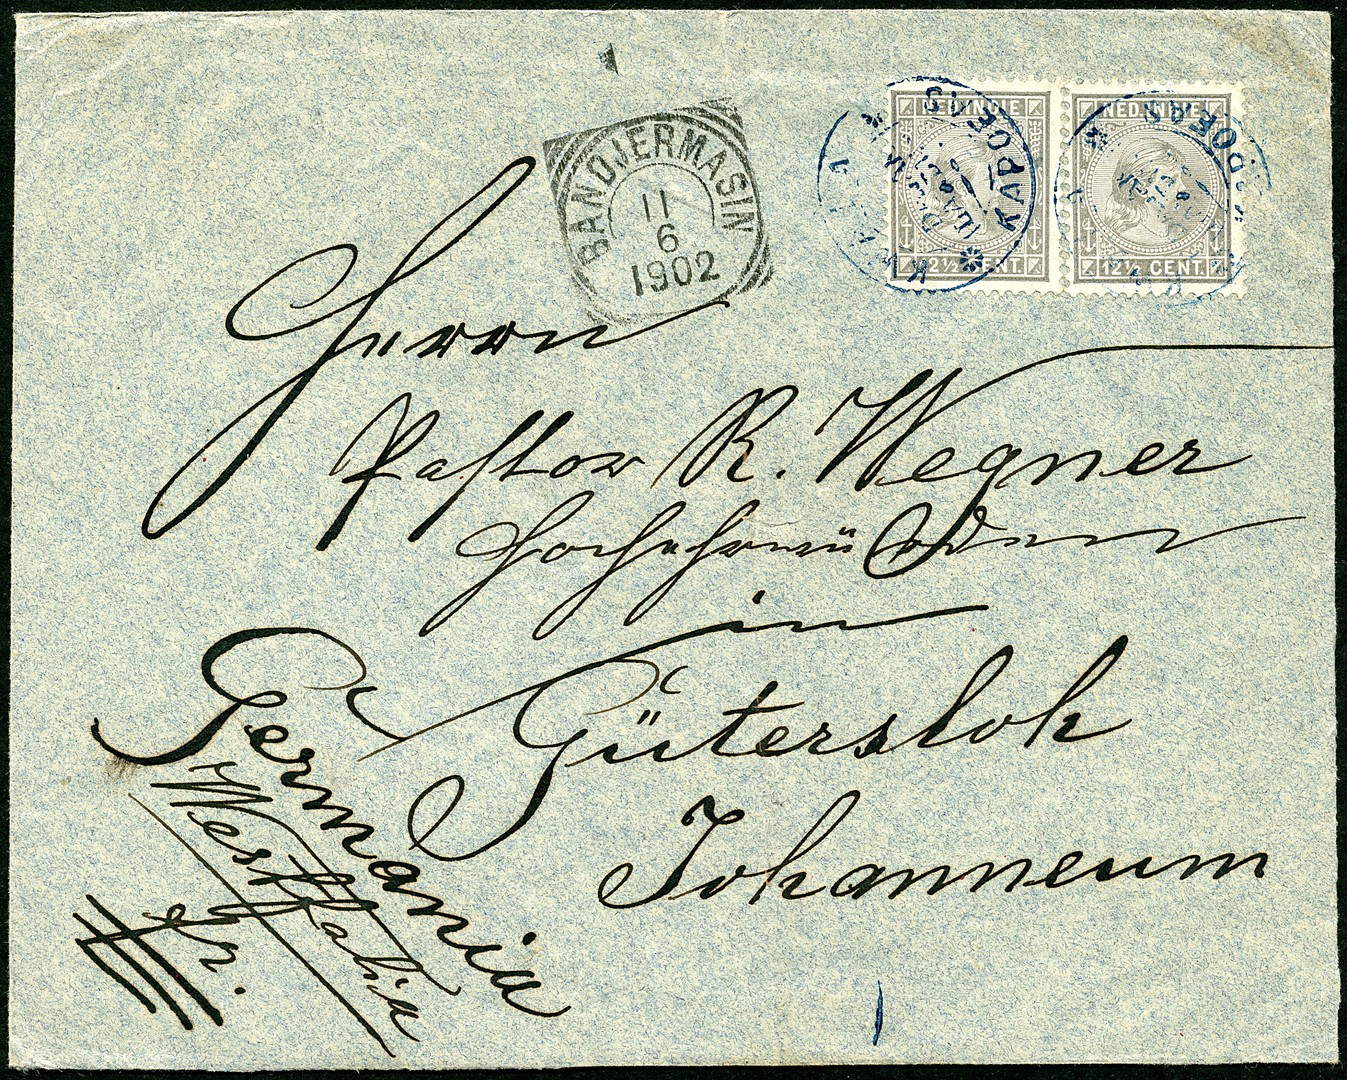 BANDJERMASIN
11
6
1902
NED.INDIE
12½ CENT.
NED.INDIE
12½ CENT.
KAPOEAS
Herrn
Pastor R. Wegner
Hochehrwürden
in
Gütersloh
Johanneum
Germania
Westfalia
fr.